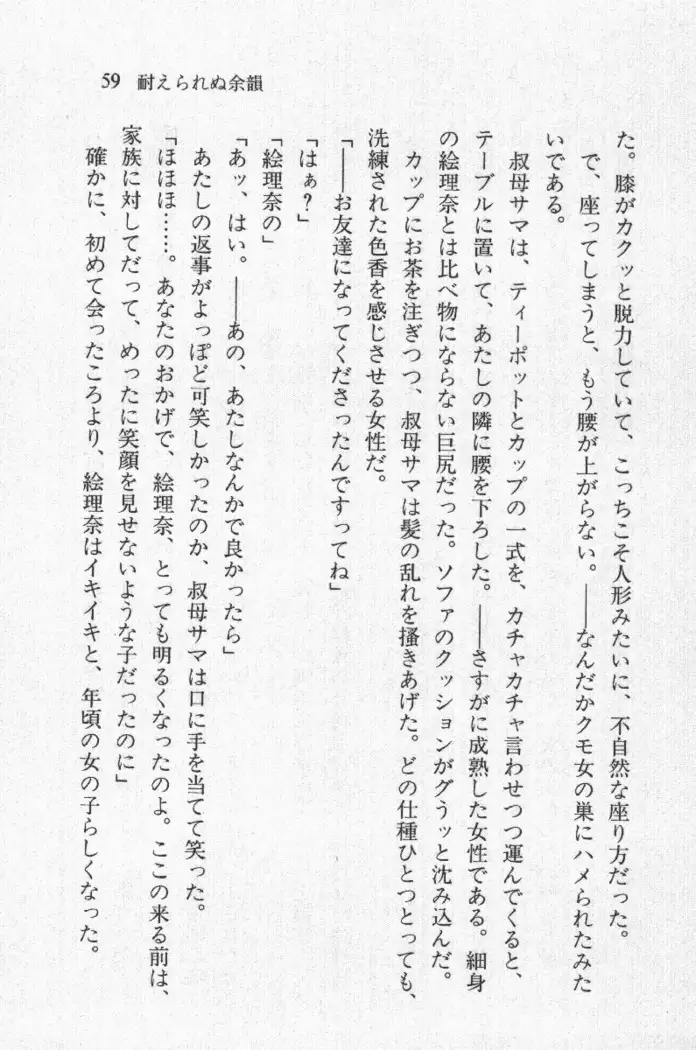 59　耐えられぬ余韻
た。膝がカクッと脱力していて、こっちこそ人形みたいに、不自然な座り方だった。
で、座ってしまうと、もう腰が上がらない。――なんだかクモ女の巣にハメられたみた
いである。
叔母サマは、ティーポットとカップの一式を、カチャカチャ言わせつつ運んでくると、
テーブルに置いて、あたしの隣に腰を下ろした。――さすがに成熟した女性である。細身
の絵理奈とは比べ物にならない巨尻だった。ソファのクッションがグうッと沈み込んだ。
カップにお茶を注ぎつつ、叔母サマは髪の乱れを掻きあげた。どの仕種ひとつとっても、
洗練された色香を感じさせる女性だ。
「――お友達になってくださったんですってね」
「はぁ？」
「絵理奈の」
「あッ、はい。――あの、あたしなんかで良かったら」
あたしの返事がよっぽど可笑しかったのか、叔母サマは口に手を当てて笑った。
「ほほほ……。あなたのおかげで、絵理奈、とっても明るくなったのよ。ここの来る前は、
家族に対してだって、めったに笑顔を見せないような子だったのに」
確かに、初めて会ったころより、絵理奈はイキイキと、年頃の女の子らしくなった。